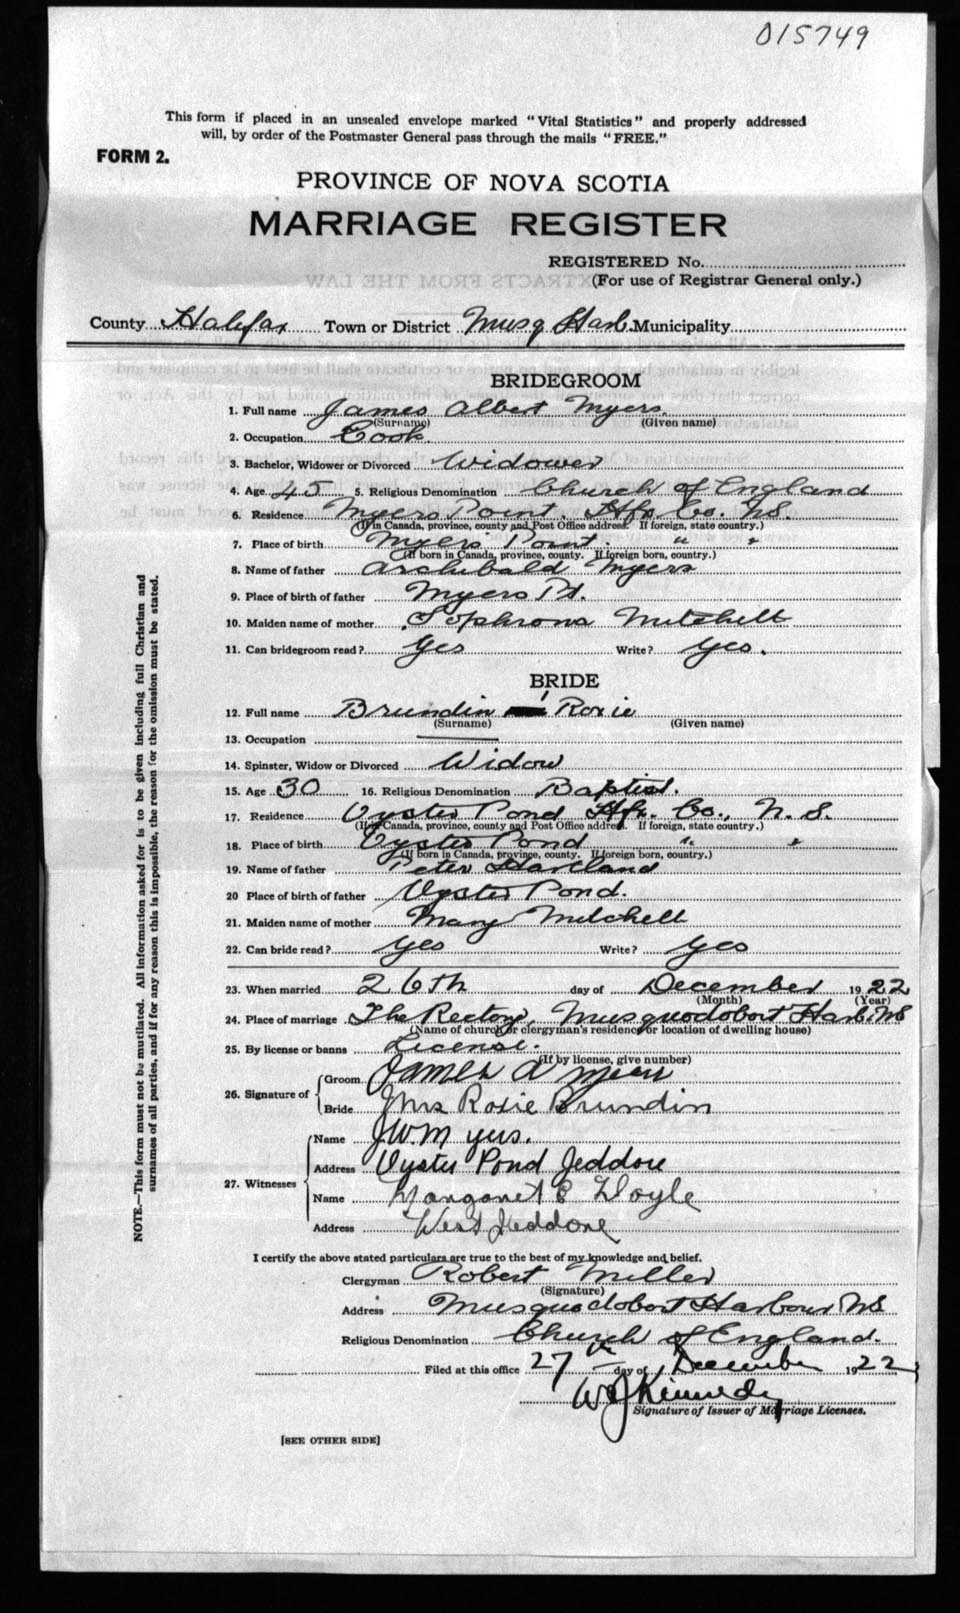 015749
This form if placed in an unsealed envelope marked "Vital Statistics" and properly addressed
will, by order of the Postmaster General pass through the mails "FREE."
FORM 2.
PROVINCE OF NOVA SCOTIA
MARRIAGE REGISTER
REGISTERED No.
(For use of Registrar General only.)
EXTRACTS FROM THE LAW
County Halifax Town or District Musq Harb. Municipality
BRIDEGROOM
1. Full name James Albert Myers.
(Surname) (Given name)
2. Occupation Cook
3. Bachelor, Widower or Divorced Widower
4. Age 45 5. Religious Denomination Church of England
6. Residence Myers Point. Hfx Co. NS.
(If in Canada, province, county and Post Office address. If foreign, state country.)
7. Place of birth Myers Point. " "
(If born in Canada, province, county. If foreign born, country.)
8. Name of father Archibald Myers
9. Place of birth of father Myers Pt.
10. Maiden name of mother Sophrona Mitchell
11. Can bridegroom read? Yes Write? Yes.
BRIDE
12. Full name Brundin Roxie
(Surname) (Given name)
13. Occupation
14. Spinster, Widow or Divorced Widow
15. Age 30 16. Religious Denomination Baptist.
17. Residence Oyster Pond Hfx. Co., N. S.
(If in Canada, province, county and Post Office address. If foreign, state country.)
18. Place of birth Oyster Pond " "
(If born in Canada, province, county. If foreign born, country.)
19. Name of father Peter Hartland
20 Place of birth of father Oyster Pond.
21. Maiden name of mother Mary Mitchell
22. Can bride read? Yes Write? Yes
23. When married 26th day of December 1922
(Month) (Year)
24. Place of marriage The Rectory, Musquodoboit Harb. NS
(Name of church or clergyman's residence or location of dwelling house)
25. By license or banns License.
(If by license, give number)
26. Signature of Groom James A Myers
Bride Mrs Roxie Brundin
27. Witnesses Name J.W. Myers.
Address Oyster Pond Jeddore
Name Margaret E Doyle
Address West Jeddore
I certify the above stated particulars are true to the best of my knowledge and belief.
Clergyman Robert Miller
(Signature)
Address Musquodoboit Harbour NS
Religious Denomination Church of England.
Filed at this office 27th day of December 1922
W J Kennedy
Signature of Issuer of Marriage Licenses.
[SEE OTHER SIDE]
NOTE.—This form must not be mutilated. All information asked for is to be given including full Christian and
surnames of all parties, and if for any reason this is impossible, the reason for the omission must be stated.